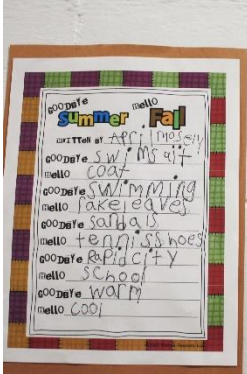 GOODBYE Summer Hello Fall
WRITTEN BY April mosely
GOODBYE swimsuit
Hello coat
GOODBYE swimming
Hello rakeleaves
GOODBYE sandals
Hello tennisshoes
GOODBYE Rapid city
Hello school
GOODBYE warm
Hello cool